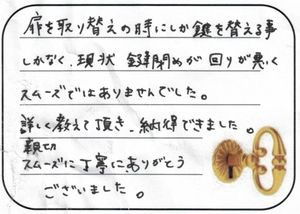 扉を取り替えの時にしか鍵を替える事
しかなく、現状 鍵閉めが 回りが悪く
スムーズではありませんでした。
詳しく教えて頂き、納得できました。
親切
スムーズに丁寧にありがとう
ございました。